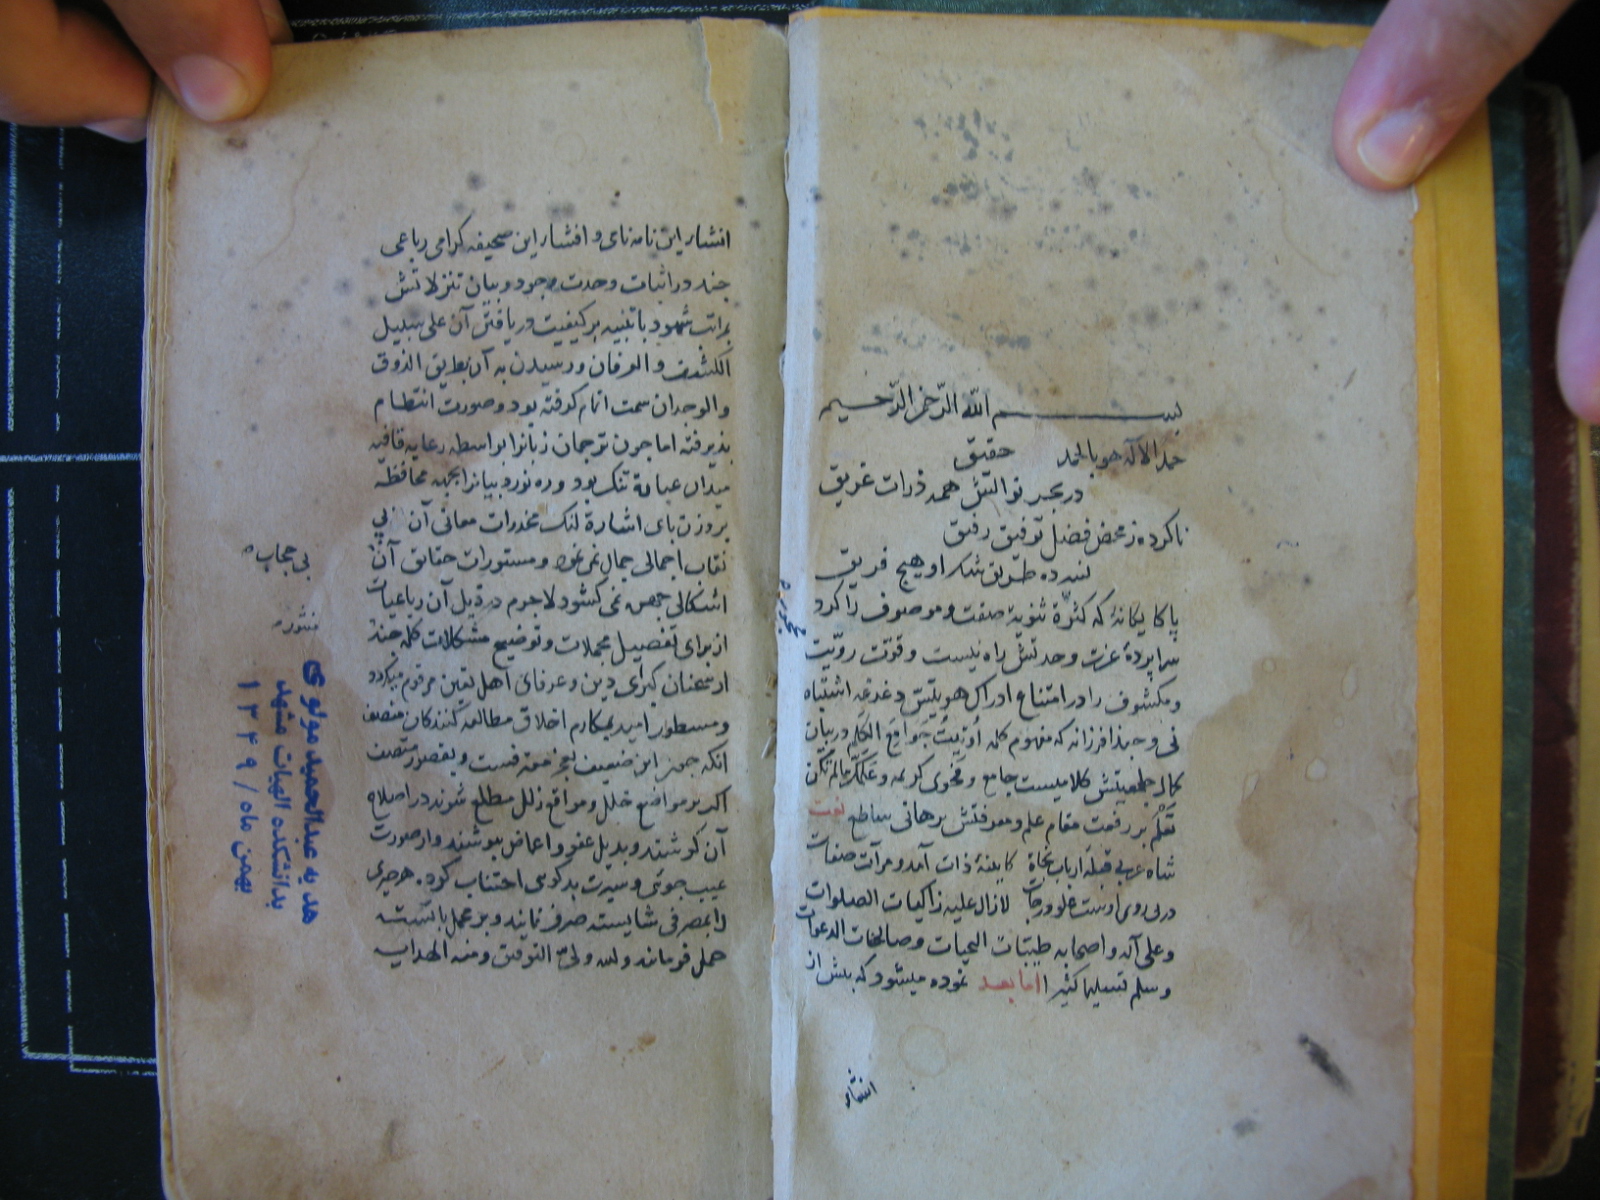 بسم الله الرحمن الرحیم
حمدا لاله هو بالحمد حقیق
در بحر نوالش همه ذرات غریق
ناکرده ز محض فضل توفیق رفیق
نسپرده طریق شکر او هیچ فریق
پاکا یکانهٔ که کثرة ثنویة صفت و موصوف را کرد
سراپردهٔ عزت وحدتش راه نیست و قوتت رویّت
و مکشوف را در امتناع ادراک هویتش دغدغه اشتباه
نی و حبذا فرزانه که مفهوم کلمه اُوتِیتُ جَوَامِعَ الکَلِم در بیان
کمال جمعیتش کلامیست جامع و فحوی کریمه و عَلَّمَکَ مَالَم تَکُن
تَعْلَم بر رفعت مقام علم و معرفتش برهانی ساطع نعت
شاه عربی قبلهٔ ارباب نجاة کاینهٔ ذات آمد و مرآت صفات
در پی روی اوست علو درجات لازال علیه زاکیات الصلوات
و علی آله و اصحابه طیبات التحیات و صالحات الدعوات
و سلم تسلیما کثیرا اما بعد نموده میشود که پیش از
انشاء
انشاء این نامه نامی و افشاء این صحیفه کرامی رباعی
جند در اثبات وحدت وجود و بیان تنزلاتش
بمراتب شهود با تنبیه بر کیفیت دریافتن آن علی سبیل
الکشف و العرفان و رسیدن به آن بطریق الذوق
و الوجدان سمت اتمام کرفته بود و صورت انتظام
پذیرفته اما جون ترجمان زبانرا بواسطه رعایه قافیه
میدان عبارة تنک بود و ره نورد بیانرا بجهه محافظه
بر وزن پای اشارة لنک مخدرات معانی آن بی
نقاب اجمالی جمال نمی نمود و مستورات حقایق آن
بی حجاب
اشکالی جهره نمی کشود لاجرم در ذیل آن رباعیات
از برای تفصیل مجملات و توضیح مشکلات کلمه جند
منثوره
از سخنان کبرای دین و عرفای اهل یقین مرقوم میکردد
و مسطور امید بمکارم اخلاق مطالعه کنندکان منصف
آنکه جون این ضعیف بعجز معترفست و بقصور متصف
اکر بر مواضع خلل و مواقع زلل مطلع شوند در اصلاح
آن کوشند و بذیل عفو و اغماض بپوشند و از صورت
عیب جوئی و سیرت بدکوئی اجتناب کرده هر جیزی
را بمصرفی شایسته صرف نمایند و بر محمل بایسته
حمل فرمایند و الله ولی التوفیق و منه الهدایه
هدیه عبدالحمید مولوی
بدانشکده الهیات مشهد
بهمن ماه / ۱۳۴۹